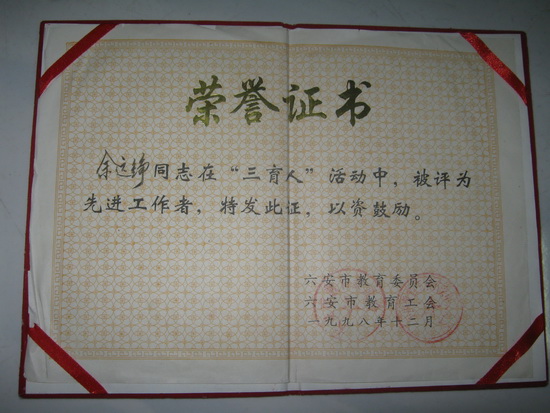 荣誉证书
余运铮同志在“三育人”活动中，被评为
先进工作者，特发此证，以资鼓励。
六安市教育委员会
六安市教育工会
一九九八年十二月